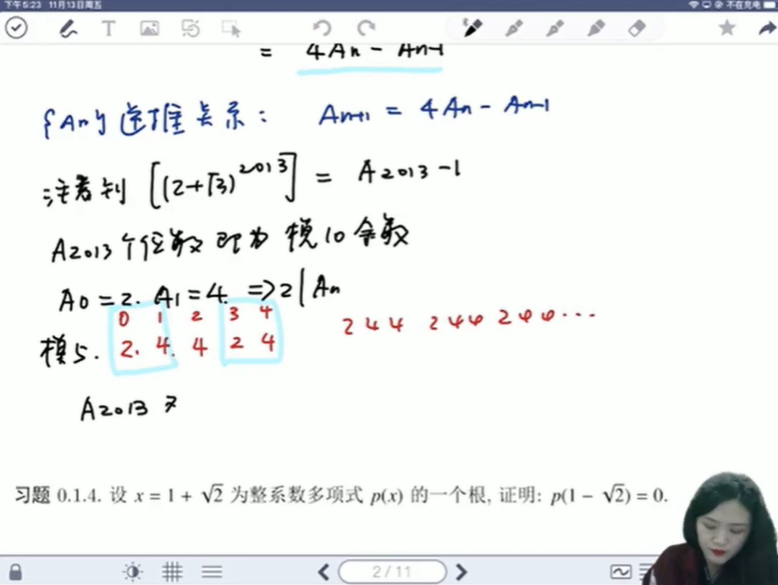 下午5:23 11月13日周五
不在充电
= 4An - An-1
{An} 递推关系: An+1 = 4An - An-1
注意到 [(2+√3)^2013] = A2013 - 1
A2013 个位数 即为 模10余数
A0 = 2. A1 = 4. => 2 | An
0 1 2 3 4
模5. 2. 4. 4 2 4
2 4 4 2 4 4 2 4 4 ...
A2013
习题 0.1.4. 设 x = 1 + √2 为整系数多项式 p(x) 的一个根, 证明: p(1 − √2) = 0.
2 / 11